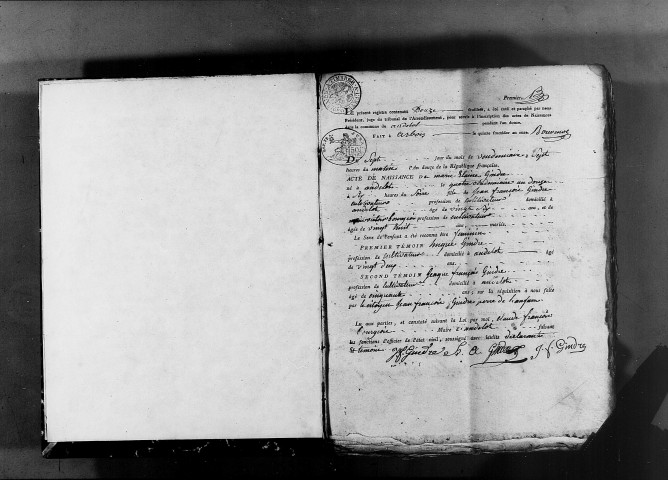 Premier
Le présent registre contenant Douze feuillets, a été coté et paraphé par nous
Président, juge du tribunal de l'Arrondissement, pour servir à l'inscription des actes de Naissances
dans la commune de andelot pendant l'an douze.
Fait à arbois le quinze fructidor an onze.
Du Sept jour du mois de vendemiaire, Sept
heures du matin l'An douze de la République française.
ACTE DE NAISSANCE De marie Gindre
né à andelot le vendemiaire an douze
à Six heures du Soir fille de jean françois Gindre
profession de Cultivateur domicilié à
andelot âgé de vingt Six ans, et de
bourgeois profession de cultivateur
âgée de vingt huit ans, mariés.
Le Sexe de l'enfant a été reconnu être feminin
PREMIER TÉMOIN Gindre
profession de Cultivateur domicilié à andelot âgé
de vingt deux ans.
SECOND TÉMOIN françois Gindre
profession de Cultivateur domicilié à andelot
âgé de cinquante ans; sur la réquisition à nous faite
par le citoyen jean françois Gindre pere de l'enfant
Lu aux parties, et constaté suivant la Loi par moi, claude françois
bourgeois Maire d'andelot faisant
les fonctions d'officier de l'état civil, soussigné avec lesdits declarant
et temoins Gindre J f Gindre